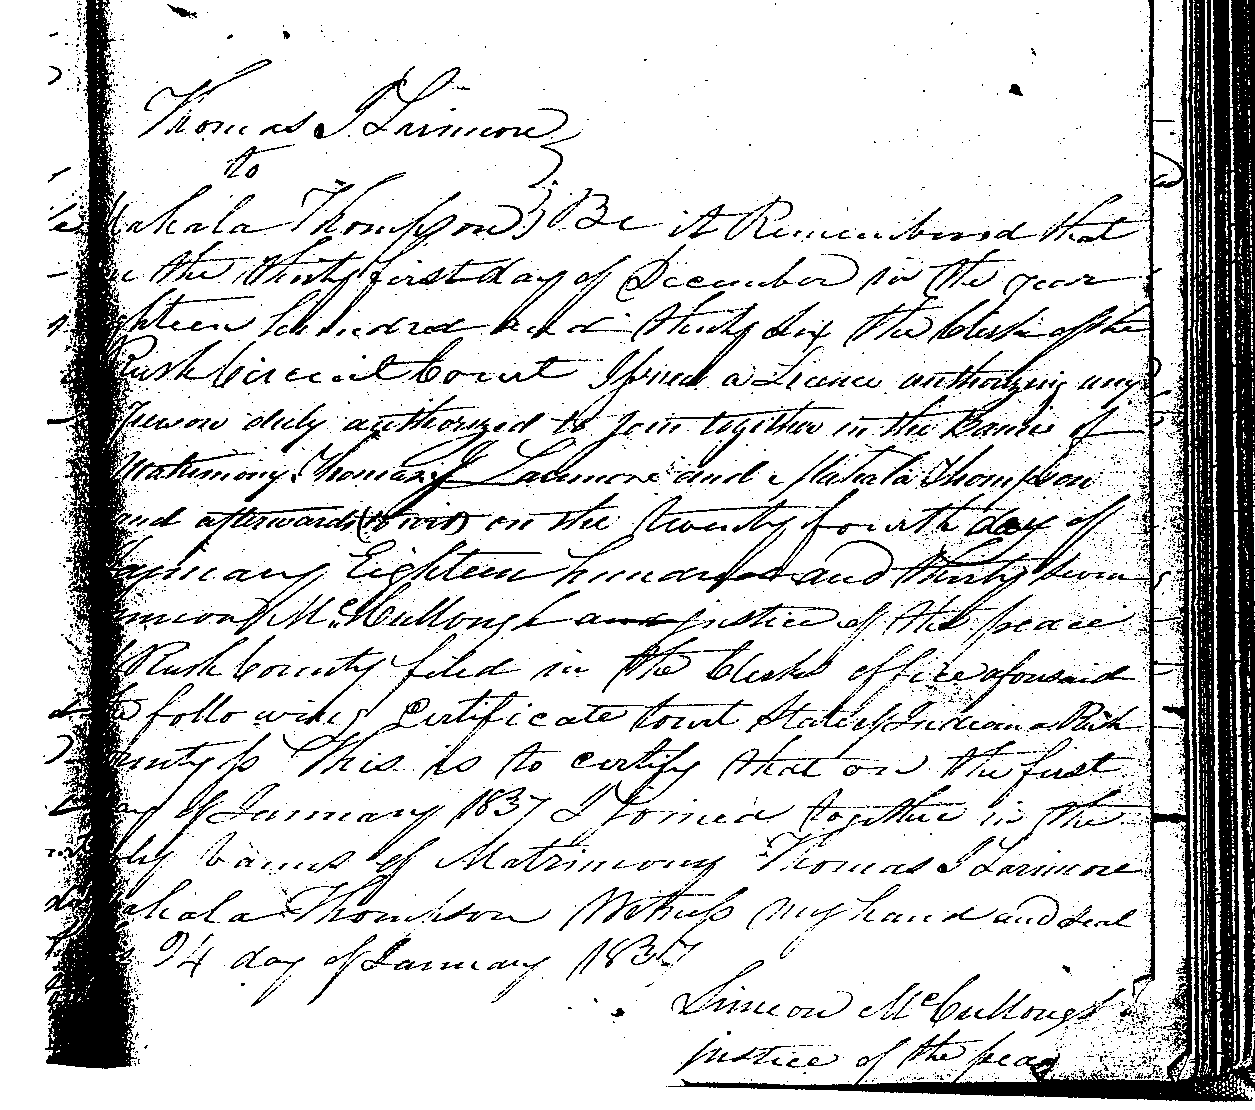 Thomas J Larimore
to
Mahala Thompson Be it Remembered that
on the thirty first day of December in the year
Eighteen hundred and thirty Six the Clerk of the
Rush Circuit Court Issued a Licence authorizing any
person duly authorized to join together in the banns of
Matrimony Thomas J Larimore and Mahala Thompson
and afterwards (to wit) on the twenty fourth day of
January Eighteen hundred and thirty seven
Simeon McCullough justice of the peace
of Rush County filed in the Clerks office aforesaid
the following Certificate towit State of Indiana Rush
County ss This is to certify that on the first
day of January 1837 I Joined together in the
holy banns of Matrimony Thomas J Larimore
Mahala Thompson Witness my hand and seal
24 day of January 1837
Simeon McCullough
justice of the peace